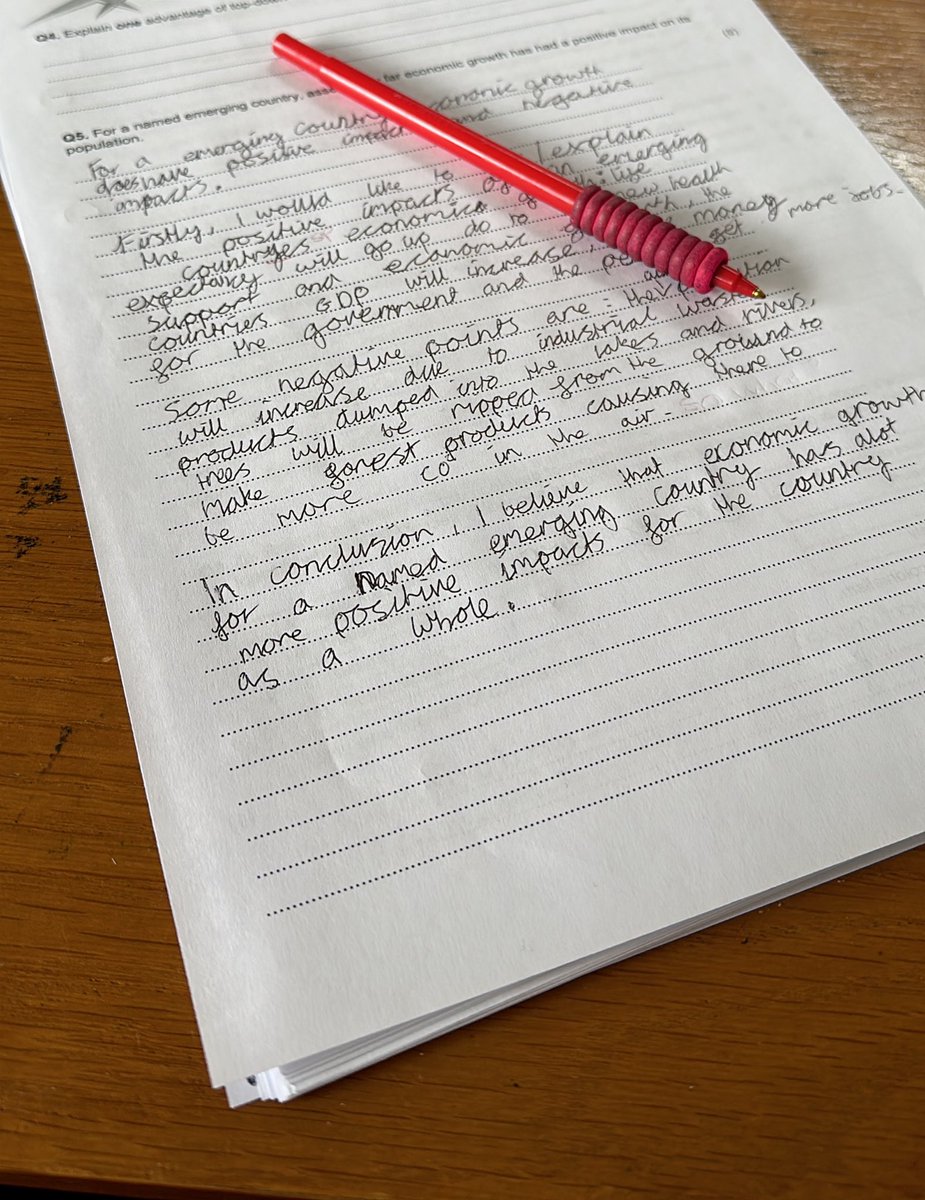 Q4. Explain one advantage of top-down
Q5. For a named emerging country, far economic growth has had a positive impact on its
population.
(8)
For a emerging country economic growth
does have positive impacts and negative
impacts.
Firstly, I would like to explain
the positive impacts of in emerging
countryes economics life
expectancy will go up do to new health
support and economic the
countries GDP will increase money more jobs.
for the government and the get
Some negative points are : the
will increase due to industrial
products dumped into the lakes and rivers,
trees will be ripped from the ground to
make forest products causing there to
be more co in the air. So what
In conclusion, I believe that economic growth
for a Named emerging country has alot
more positive impacts for the country
as a whole.